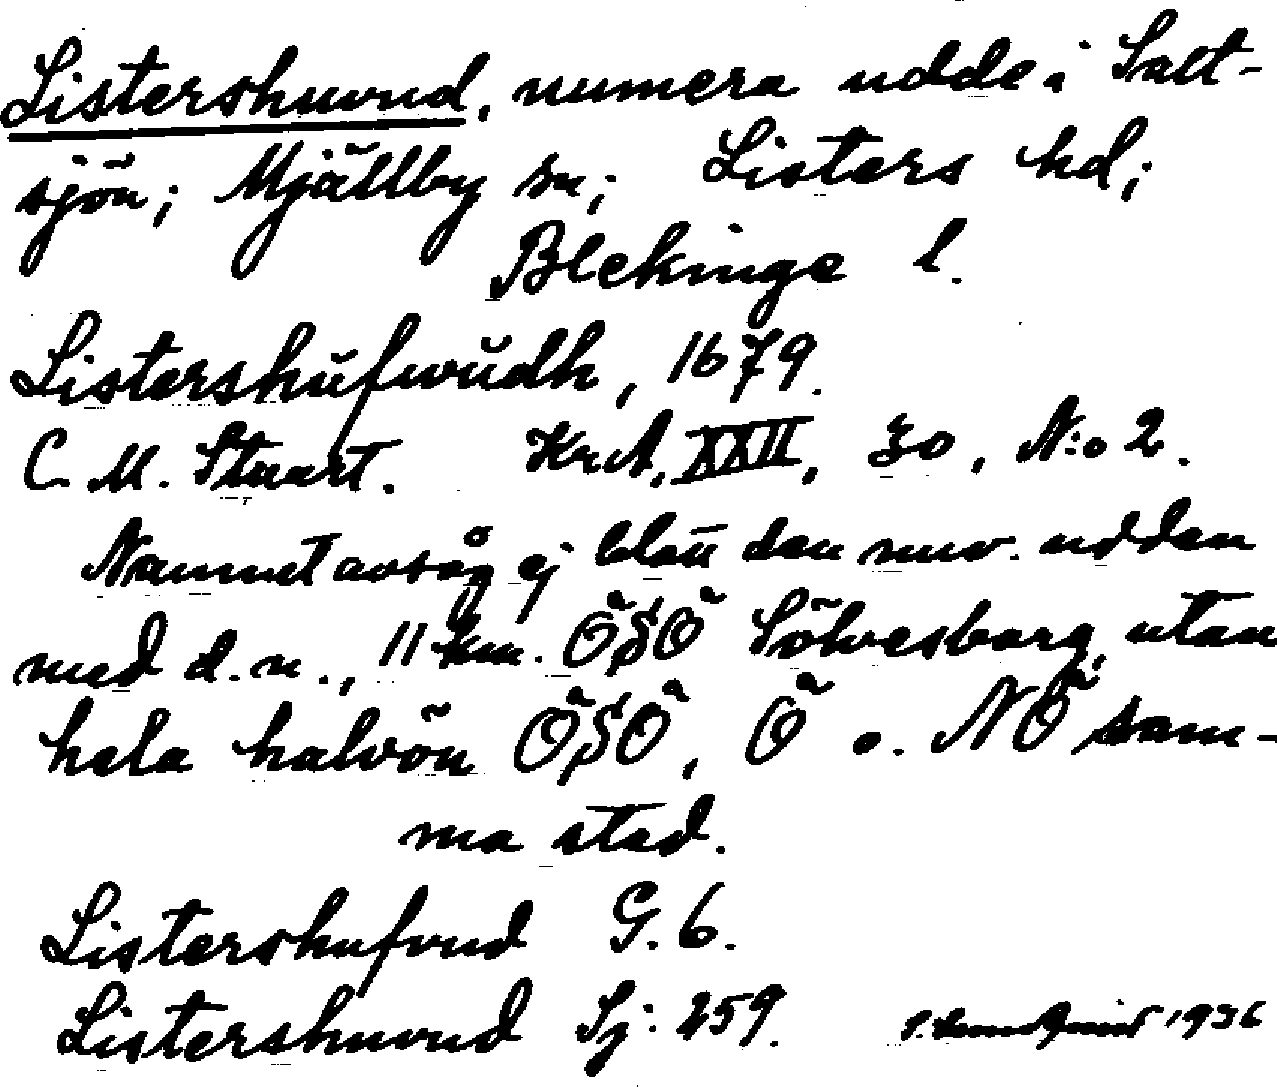 Listershuvud, numera udde i Salt-
sjön; Mjällby sn; Listers hd;
Blekinge l.
Listershŭfwŭdh, 1679.
C. M. Stuart. Krit. XXII, 30, N:o 2.
Namnet avsåg ej blott den nuv. udden
med d. n., 11 km. ÖSÖ Sölvesborg, utan
hela halvön ÖSÖ, Ö o. NÖ samm-
ma stad.
Listershufvud G. 6.
Listershuvud Sj: 259. 1936